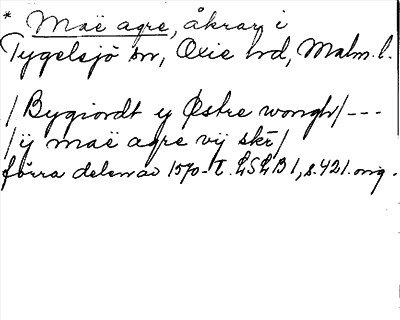 * Maë agre, åkrar i
Tygelsjö sn, Oxie hd, Malm. l.
/ Bygiordt y Østre wongh / ---
/ ÿ maë agre vij skr /
förra delen av 1570-t. LSLB 1, s. 421. orig.